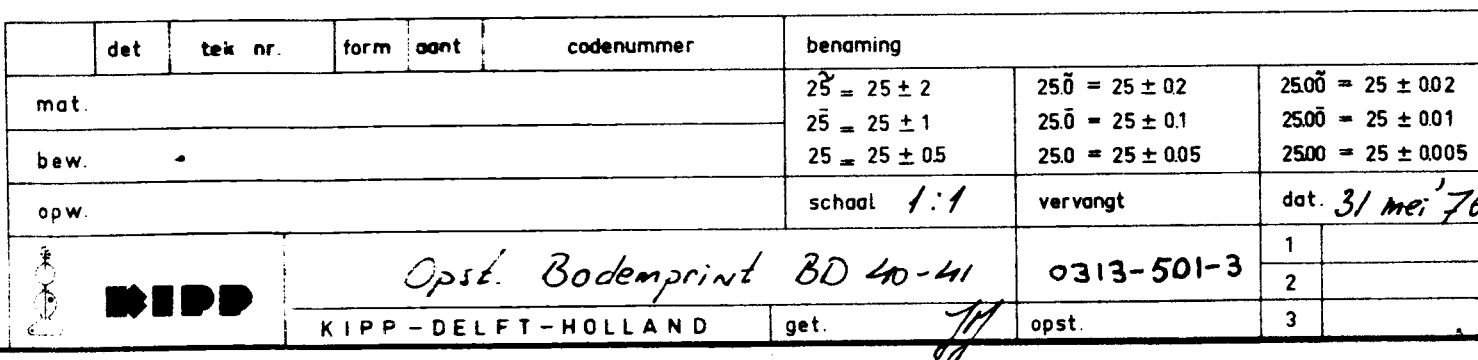 det tek nr. form aant codenummer benaming
mat. 25̃ = 25 ± 2 25.0̃ = 25 ± 0.2 25.00̃ = 25 ± 0.02
25̄ = 25 ± 1 25.0̄ = 25 ± 0.1 25.00̄ = 25 ± 0.01
bew. 25 = 25 ± 0.5 25.0 = 25 ± 0.05 25.00 = 25 ± 0.005
opw. schaal 1:1 vervangt dat. 31 mei '76
KIPP Opst. Bodemprint BD 40-41 0313-501-3 1
2
KIPP-DELFT-HOLLAND get. opst. 3